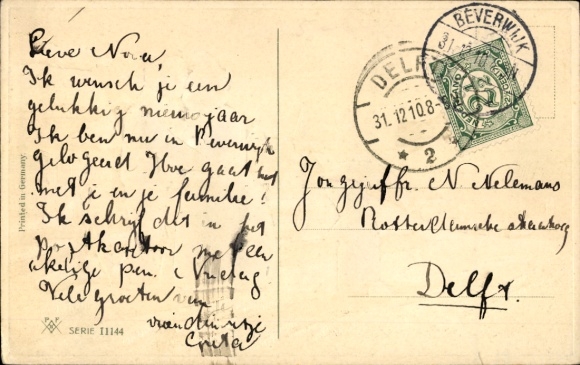 Lieve Nora,
Ik wensch je een
gelukkig nieuwjaar
Ik ben nu in Beverwijk
gelogeerd Hoe gaat het
met je en je familie!
Ik schrijf dit in het
postkantoor met een
akelige pen.
Vele groeten van
vriendinnetje
Greta
Printed in Germany.
SERIE 11144
BEVERWIJK
31.12.10
DELFT
31.12.10.8-
* 2
NEDERLAND
2½
Jongejuffr. N. Nelemans
Rotterdamsche
Delft.